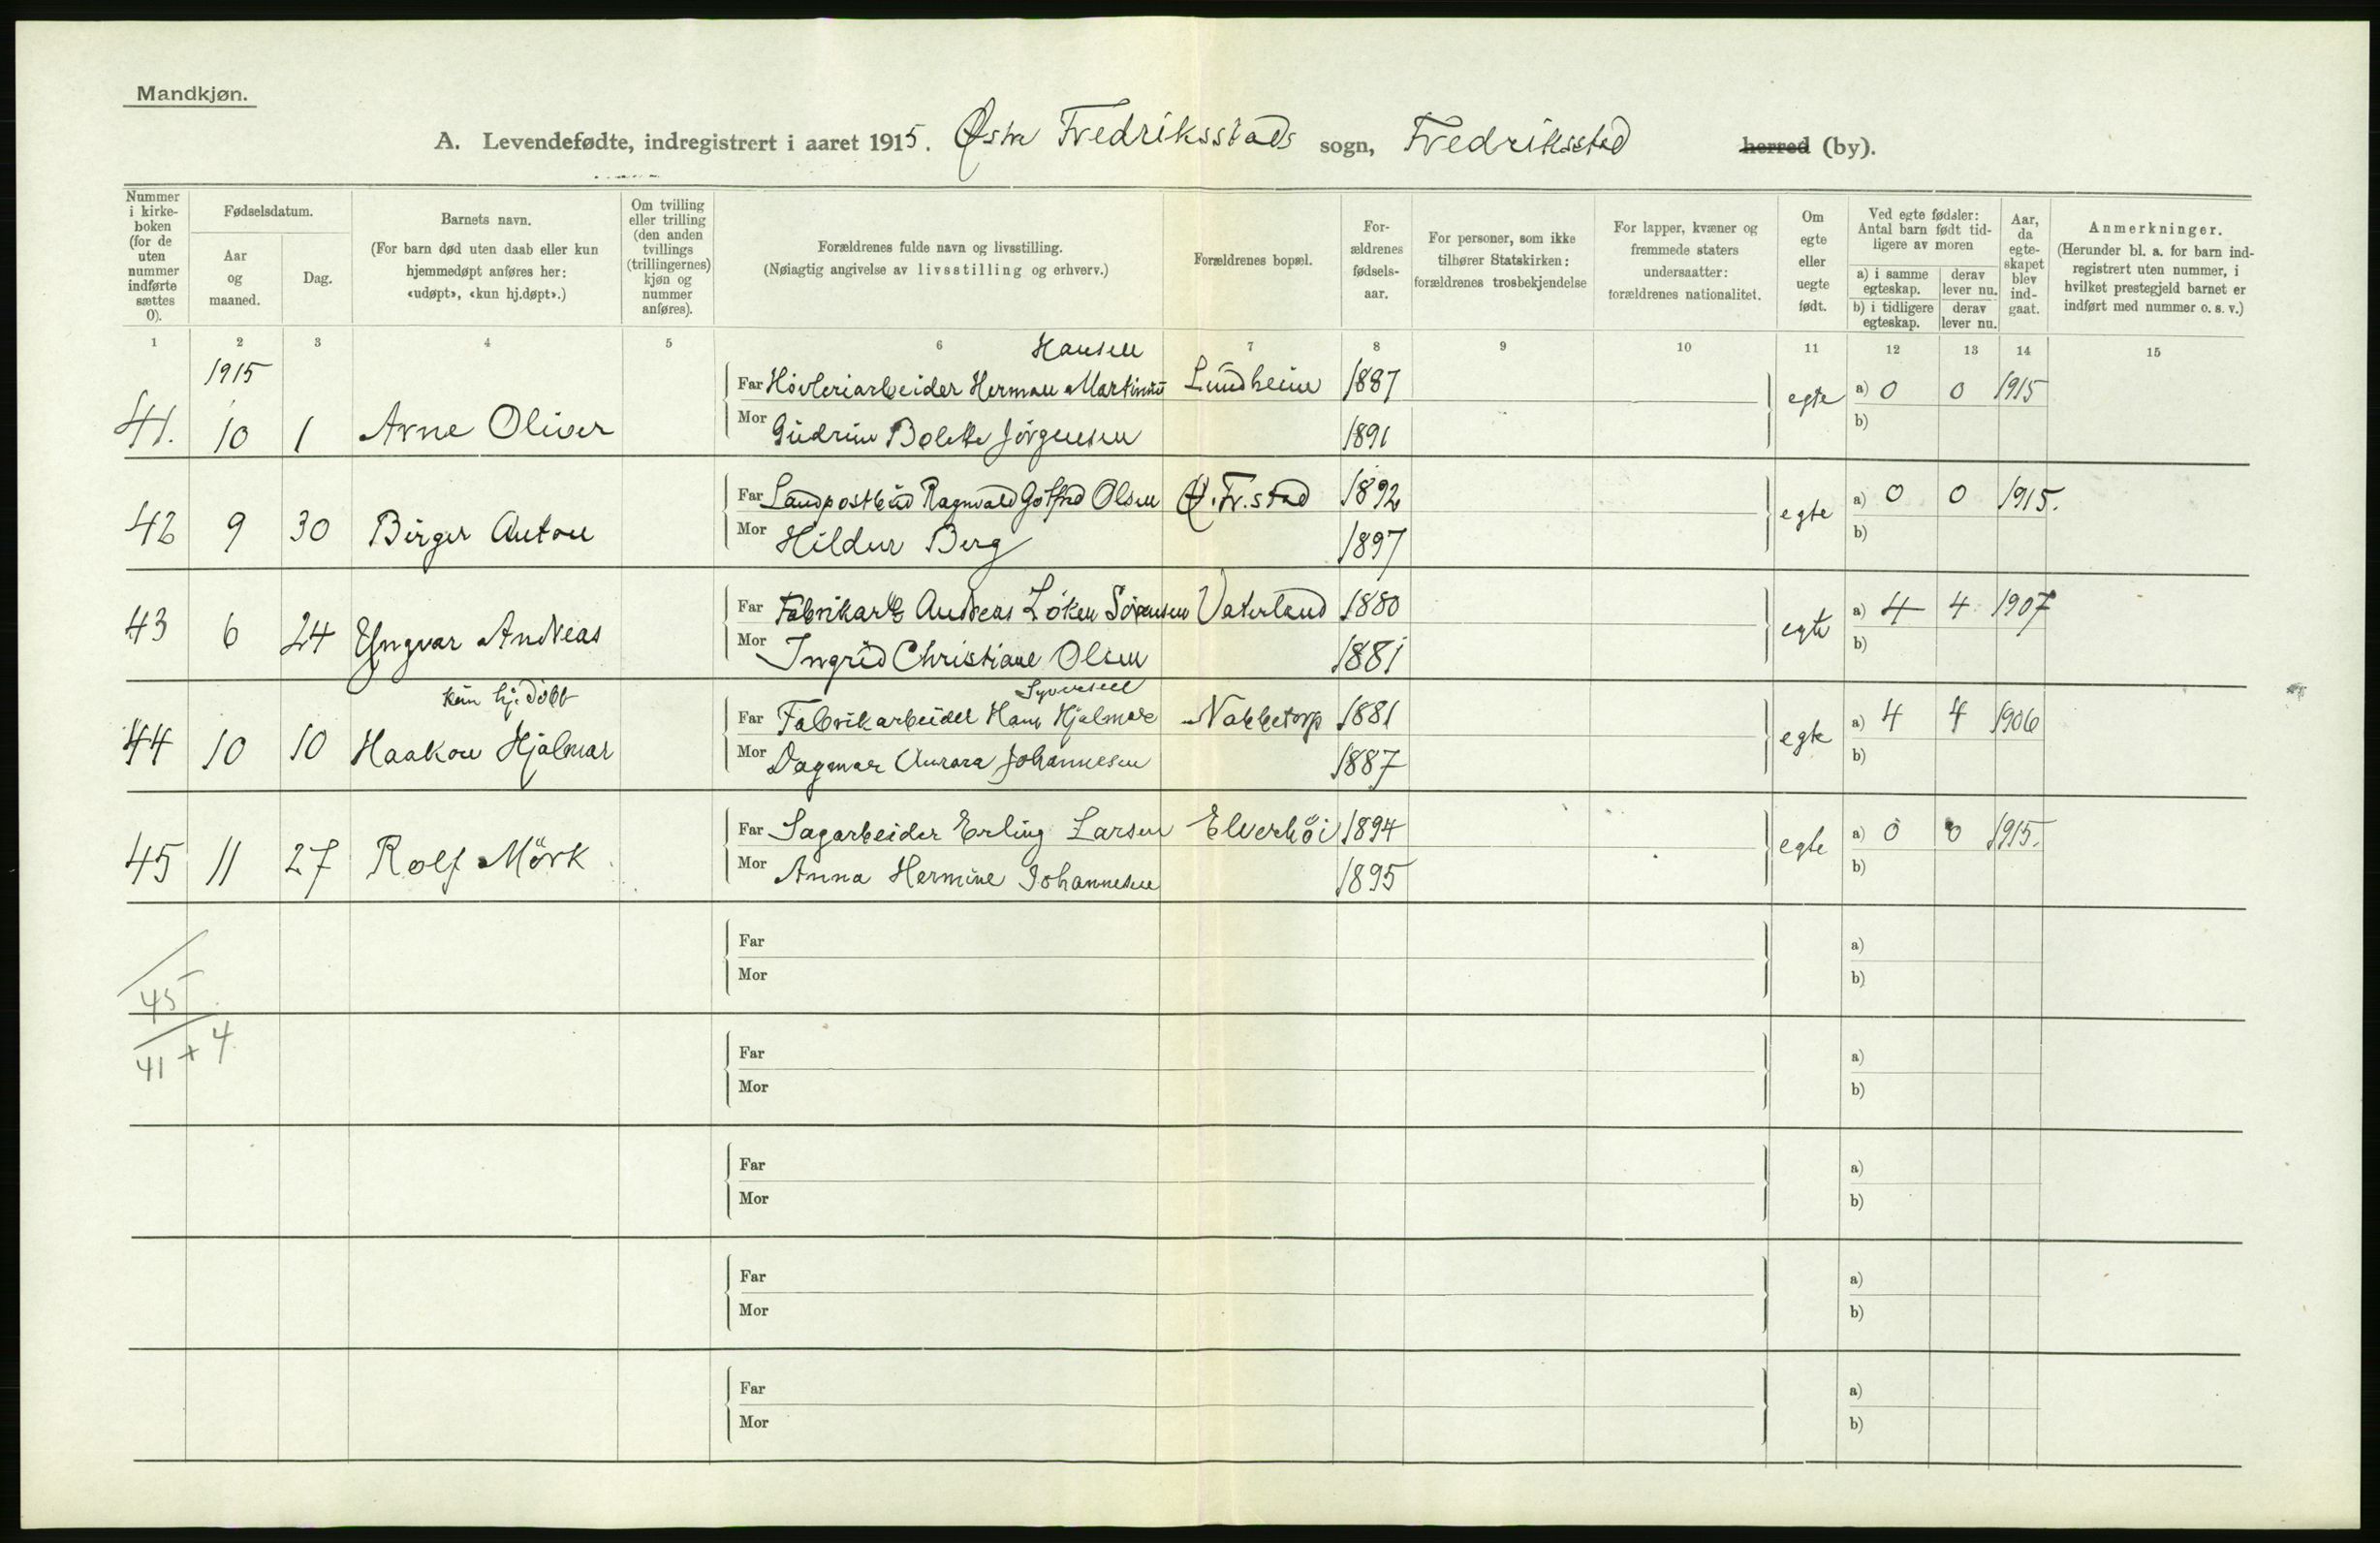 Mandkjøn.
A. Levendefødte, indregistrert i aaret 1915. Østre Fredriksstads sogn, Fredriksstad herred (by).
Nummer i kirke-boken (for de uten nummer indførte sættes 0).
Fødselsdatum.
Aar og maaned.
Dag.
Barnets navn.
(For barn død uten daab eller kun hjemmedøpt anføres her: «udøpt», «kun hj.døpt».)
Om tvilling eller trilling (den anden tvillings (trillingernes) kjøn og nummer anføres).
Forældrenes fulde navn og livsstilling.
(Nøiagtig angivelse av livsstilling og erhverv.)
Forældrenes bopæl.
For-ældrenes fødsels-aar.
For personer, som ikke tilhører Statskirken: forældrenes trosbekjendelse
For lapper, kvæner og fremmede staters undersaatter: forældrenes nationalitet.
Om egte eller uegte født.
Ved egte fødsler: Antal barn født tid-ligere av moren
a) i samme egteskap. derav lever nu.
b) i tidligere egteskap. derav lever nu.
Aar, da egte-skapet blev ind-gaat.
Anmerkninger.
(Herunder bl. a. for barn ind-registrert uten nummer, i hvilket prestegjeld barnet er indført med nummer o. s. v.)
1 2 3 4 5 6 7 8 9 10 11 12 13 14 15
1915 Hansen
Far Høvleriarbeider Herman Martinius Lundheim 1887 egte a) 0 0 1915
41. 10 1 Arne Oliver Mor Gudrun Bolette Jörgensen 1891 b)
Far Landpostbud Ragnvald Gotfred Olsen Ø.Fr.stad 1892 egte a) 0 0 1915.
42 9 30 Birger Anton Mor Hildur Berg 1897 b)
Far Fabrikarb Andreas Löken Sörensen Vaterland 1880 egte a) 4 4 1907
43 6 24 Yngvar Andreas Mor Ingrid Christiane Olsen 1881 b)
kun hj.döbt Syversen
Far Fabrikarbeider Hans Hjalmar Nabbetorp 1881 egte a) 4 4 1906
44 10 10 Haakon Hjalmar Mor Dagmar Aurora Johannesen 1887 b)
Far Sagarbeider Erling Larsen Elverhöi 1894 egte a) 0 0 1915.
45 11 27 Rolf Mörk Mor Anna Hermine Johannesen 1895 b)
Far a)
Mor b)
45
Far a)
41 + 4
Mor b)
Far a)
Mor b)
Far a)
Mor b)
Far a)
Mor b)